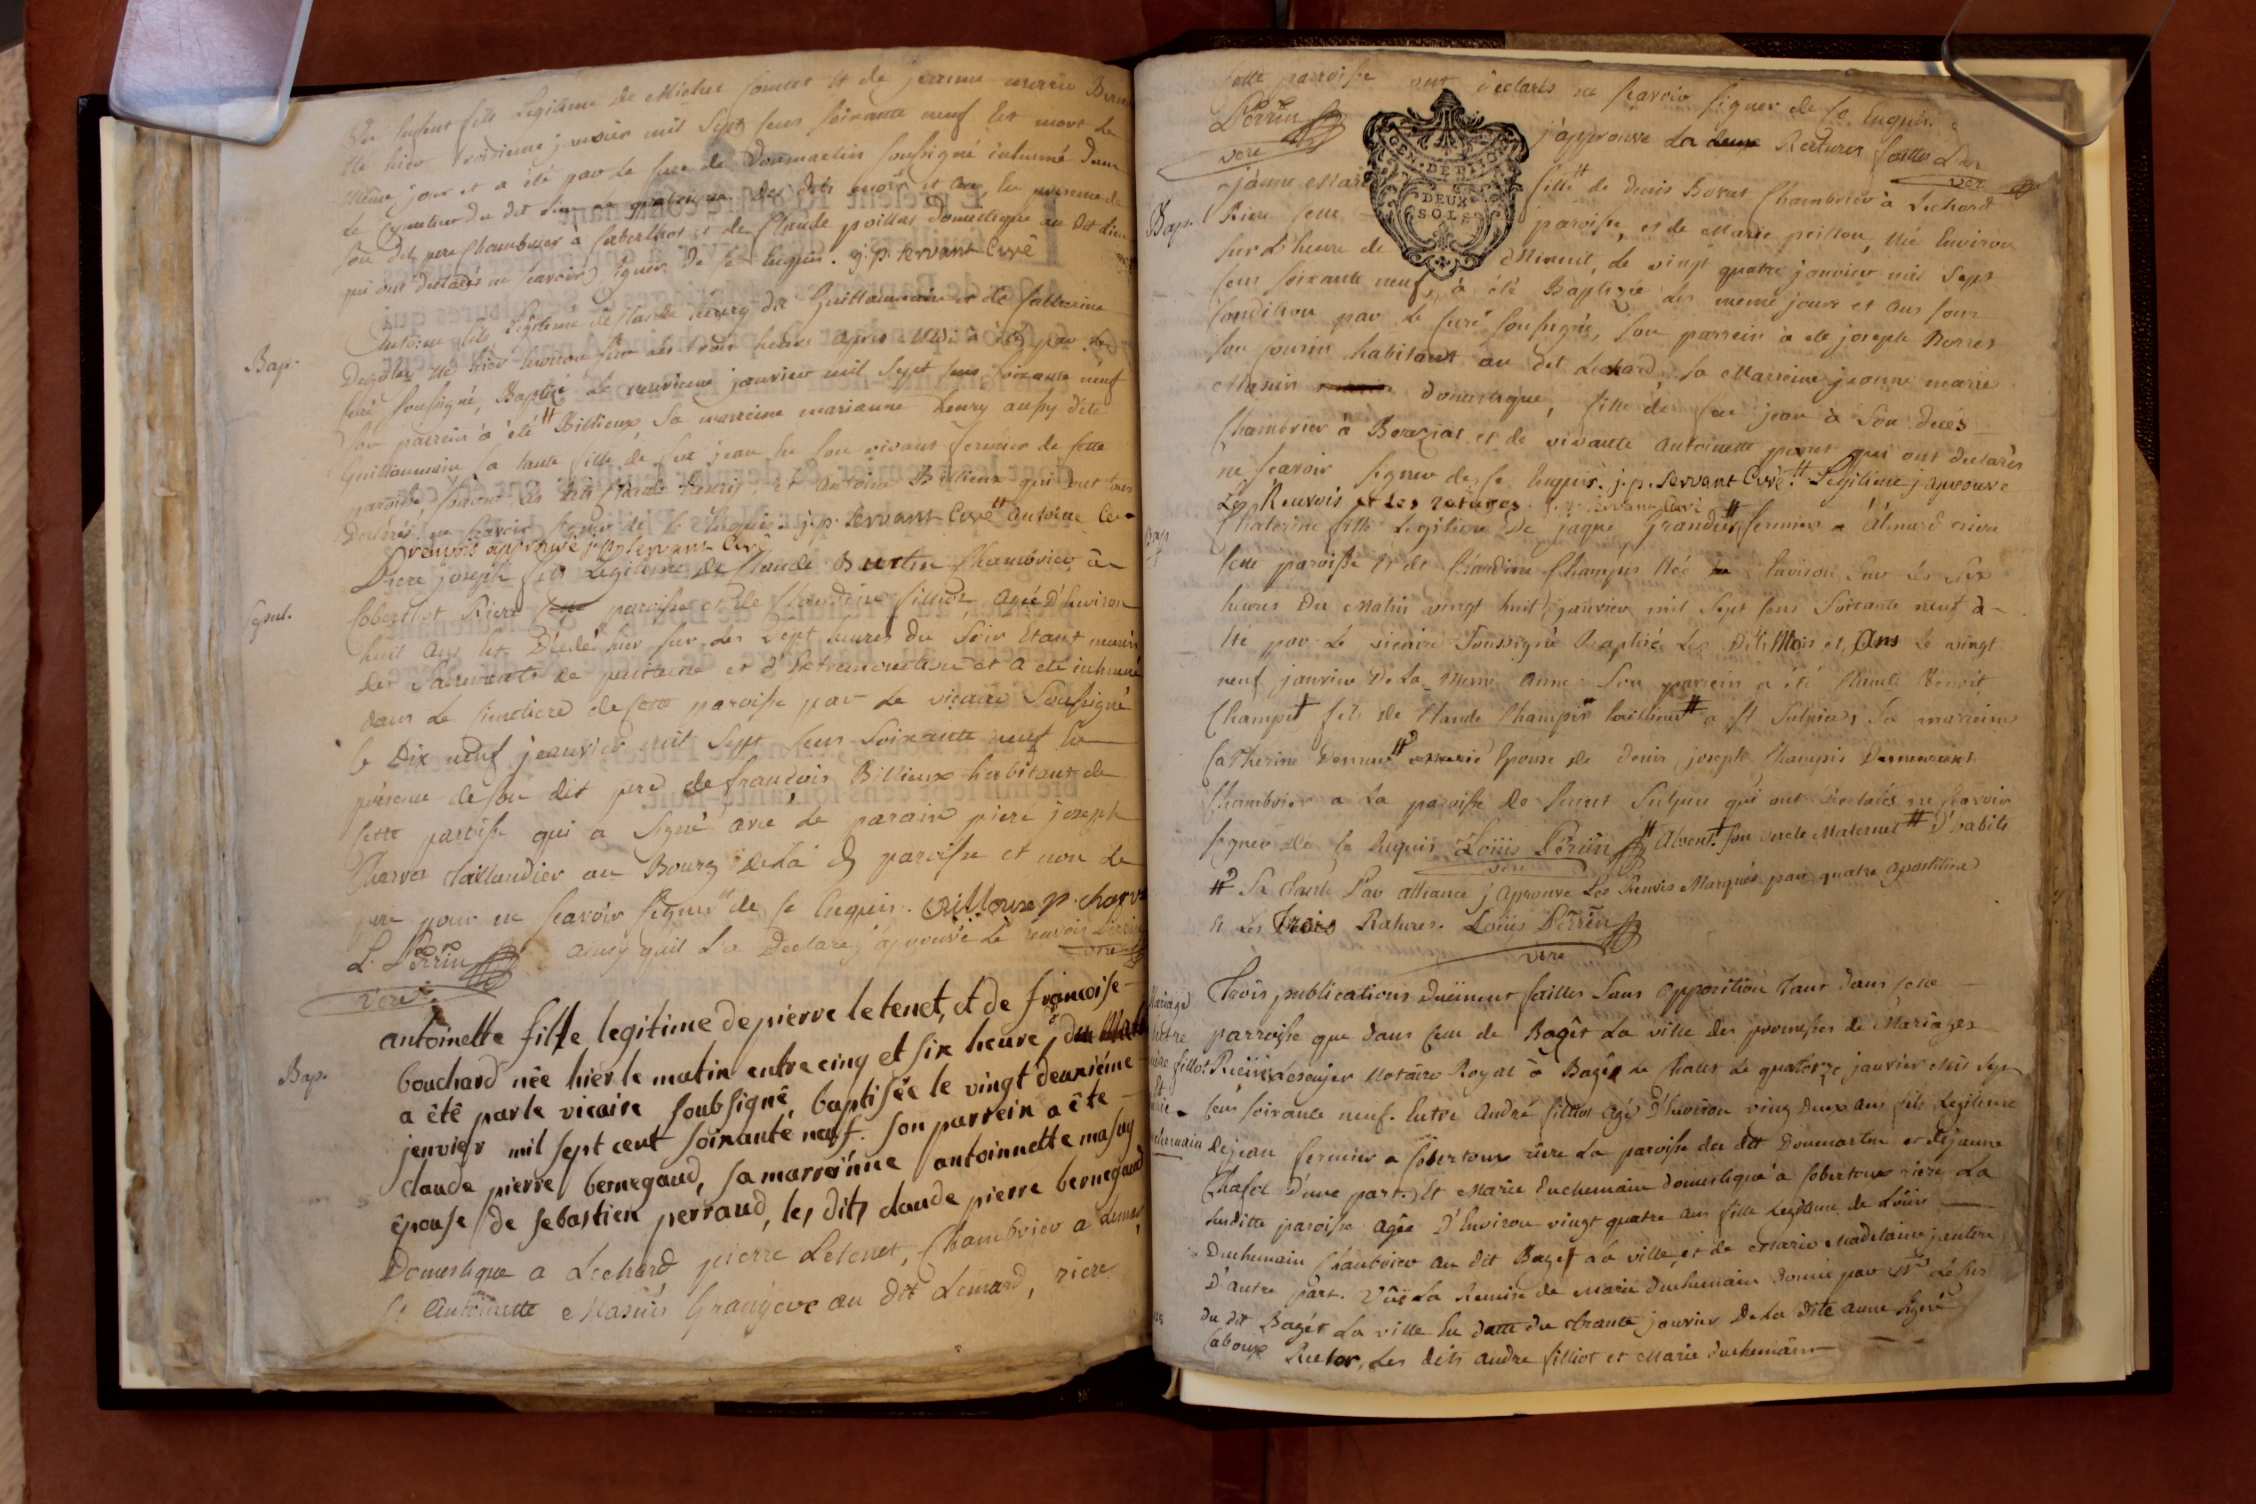 Un Enfant fils Legitime de Michel et de jeanne marie
Né hier troisieme janvier mil Sept Cens soixante neuf Est mort Le
même jour et a été par Le Curé de Dommartin soussigné inhumé Dans
Le Cimetiere du dit Lieu Le quatrieme des dits mois et an, En presence de
son dit pere Chambrier à et de Claude poillat Domestique au dit Lieu
qui ont declarés ne scavoir signer De ce Enquis. j. p. servant Curé
Bap.
Antoine fils Légitime de Claude henry dit Guillaumain et de Catherine
Né hier Environ sur les trois heures apres midi a été par Le
Curé soussigné, Baptizé Le neuvieme janvier mil Sept Cens soixante neuf
son parrein a été # Billioux sa marreine marianne henry aussy dite
Guillaumain sa tante fille de feu jean En son vivant fermier de Cette
paroisse, Claude henry, et Antoine Billioux qui ont tous
Declarés ne scavoir signer de ce Enquis j. p. servant Curé # Antoine Le
renvois approuvé j. p. servant Curé
Sepul.
Piere joseph fils Legitime de Claude Burtin Chambrier à
Coberthot Riere paroisse et de Claudine filliot Agé D'Environ
huit Ans Est Décédé hier sur Les Sept heures du Soir Etant muni
Des Sacrements de penitence et d'Extremonction et A eté inhumé
dans Le Cimetiere de Cette paroisse par Le vicaire Soussigné
le Dix neuf jeanvier mil Sept Cens Soixante neuf En
présence de son dit pere de françois Billioux habitant de
Cette paroisse qui a Signé avec Le parain piere joseph
Charvet taillandier au Bourg de La d paroisse et non Le
pere pour ne scavoir signer # de ce Enquis. Billoux p. charvet
L. Perrin # ainsy quil L'a Declaré, aprouvé Le renvois Perrin
vere vere
Bap.
antoinette fille legitime de pierre letenet, et de françoise
bouchard née hier le matin entre cinq et six heure, du
a êtê par le vicaire soubsigné, baptisée le vingt deuxième
jenvier mil sept cent soixante neuf. son parrein a ête
claude pierre bernegaud, sa marreinne antoinnette masuy
êpouse de sebastien perraud, les dits claude pierre bernegaud
Domestique a Léchard pierre Letenet, Chambrier a Lemard,
Et Antoinette Masuis Grangere au dit Lemard, riere
Cette paroisse ont declarés ne scavoir signer de ce Enquis.
Perrin j'approuve La deux Ratures faittes L. Per
vere vere
GEN. DE DIJON
DEUX
SOLS
Bap. jeanne Marie fille # de denis Borret Chambrier à Lechard
Riere Cette paroisse, et de Marie peisson, Née Environ
sur L'heure de Minuit, Le vingt quatre janvier mil Sept
Cens soixante neuf, a été Baptizée les meme jour et ans sous
Condition par le Curé soussigné, son parrein a eté joseph Borret
son cousin habitant au dit Lechard, sa Marreine jeanne marie
Masuir domestique, fille de feu jean à Son décés
Chambrier à Bereziat et de vivante Antoinette qui ont declarés
ne scavoir signer de ce Enquis. j. p. servant Curé. # Légitime j'aprouve
Les Renvois et les ratures. j. p. servant Curé
Bap
Chaterine fille Legitime De jaque Grandis # fermier a Elmard riere
Cette paroisse Et de Claudine Champis Née Environ Sur Les Six
heures Du Matin vingt huit janvier mil Sept Cens Soixante neuf à
Eté par Le vicaire Soussigné Baptisé Les Dits Mois et Ans Le vingt
neuf janvier De La meme Année Son parrein a été Claude Benoit
Champis † fils de Claude Champis # a St Sulpice, Sa marreine
Catherine # Epouse de Denis joseph Champis Demeurant
Chambrier a La paroisse De Saint Sulpice qui ont declarés ne scavoir
signer de ce Enquis Louis Perrin # Absent. † son oncle Maternel # D'habits
vere
# Sa tante Par alliance j'aprouve Les Renvois Marqués par quatre apostilles
Et Les Trois Ratures. Louis Perrin
vere
Mariage
Entre
André filliot
Et
Marie
Duchemain
Trois publications Duëment faittes Sans Opposition Tant Dans Cette
parroisse que dans Celle de Bagêt La ville des promesses de Mariages
Reçüe Notaire Royal à Bagé Le Chatel Le quatorze janvier Mil Sept
Cens soixante neuf. Entre André filliot agé D'Environ vingt Deux ans fils Legitime
De jean fermier a Cobertoux riere La paroisse du dit Dommartin et de jeanne
Chafel D'une part. Et Marie Duchemain domestique a Cobertoux riere La
Susditte paroisse agée D'Environ vingt quatre ans fille Legitime de Loüis
Duchemain Chambrier au dit Baget La ville, et de Marie Madelaine
D'autre part. Vüe La Remise de Marie Duchemain Donnée par Mr Le Curé
du dit Bagét La ville En datte du trante janvier De La dite année signé
Caboux Recteur, Les dits andré filliot et Marie duchemain